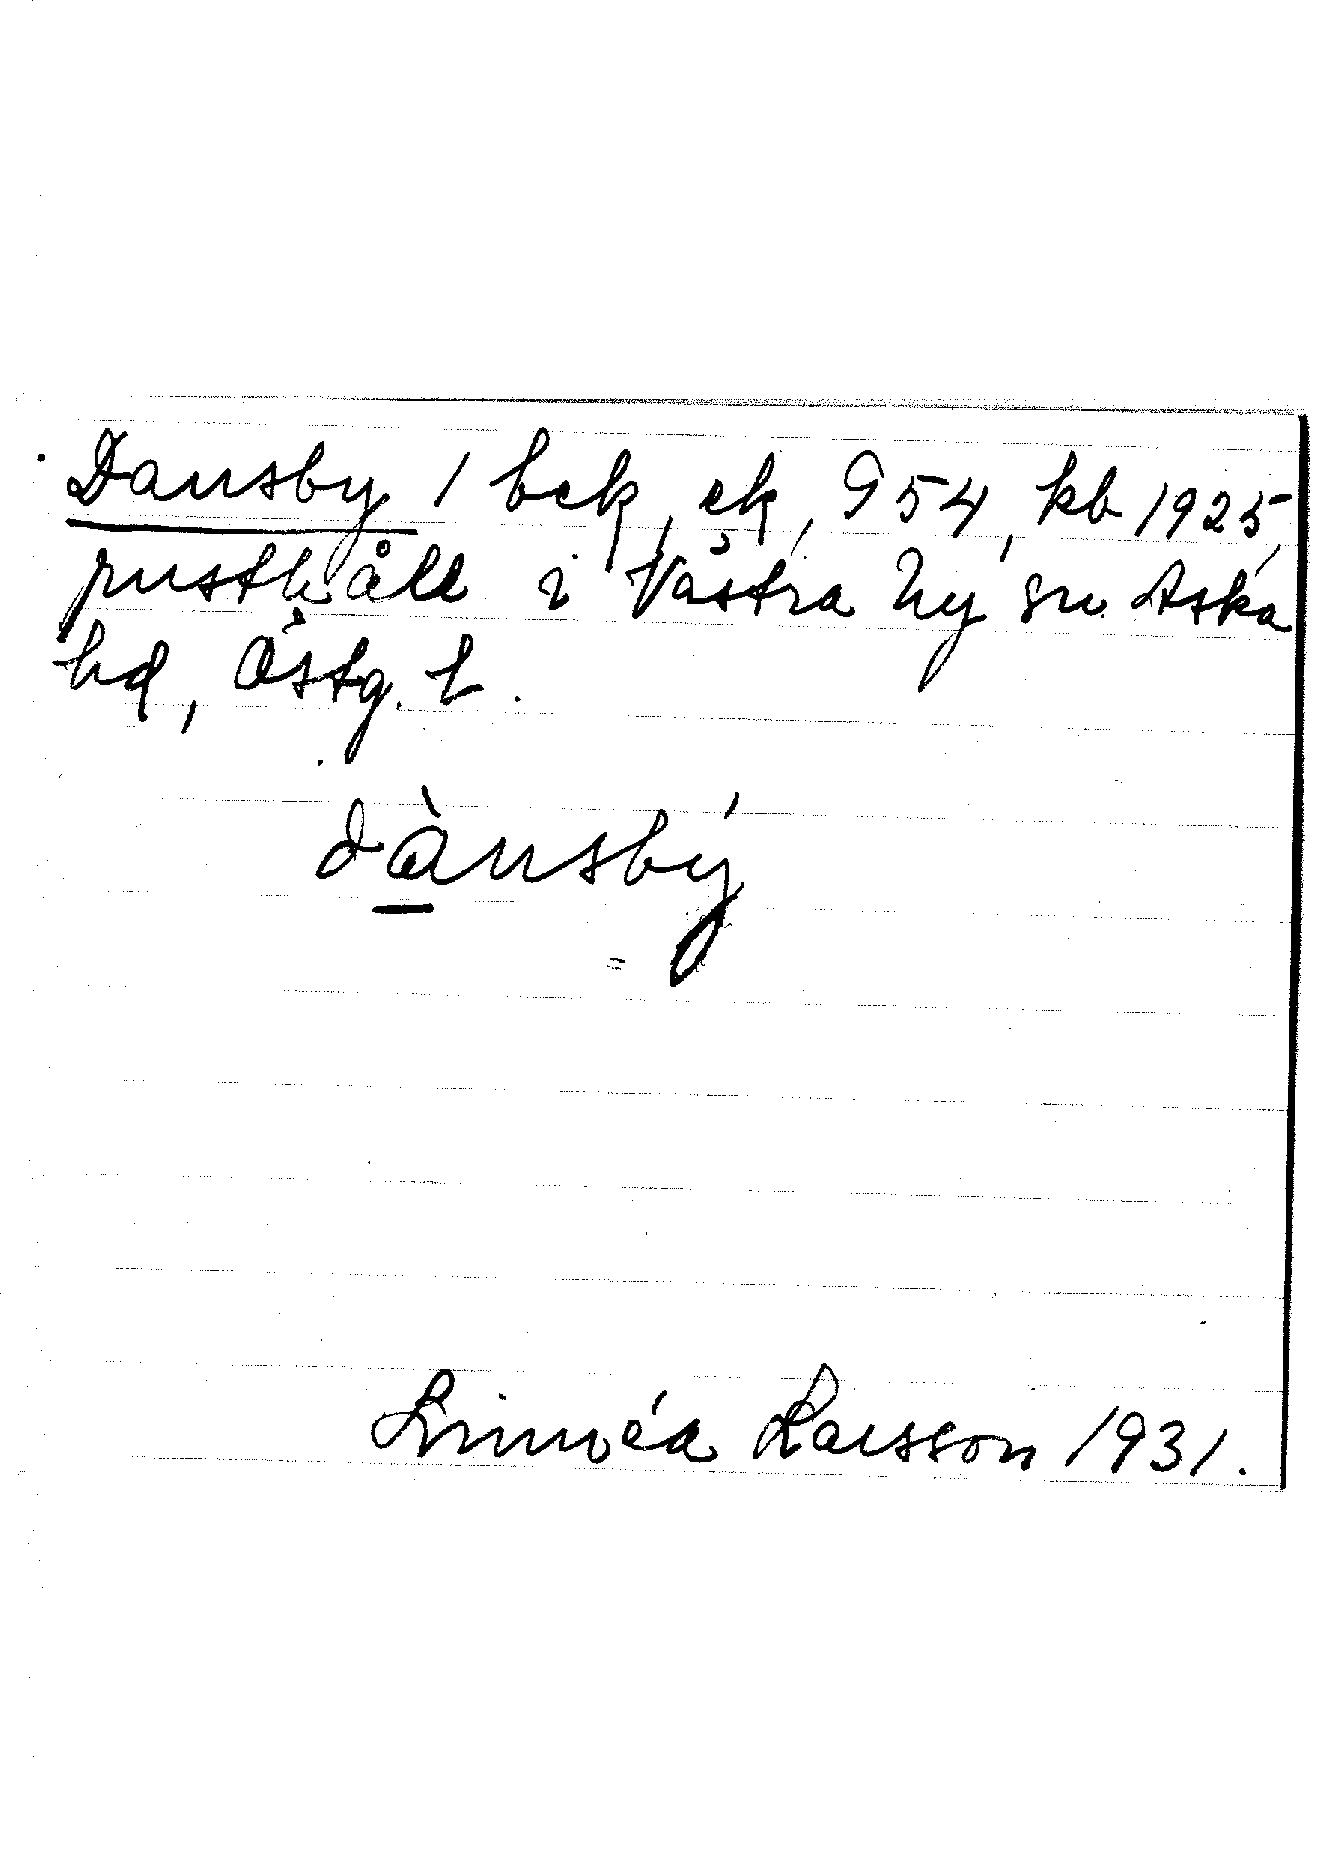 Dansby 1 bek, ek, G 54, kb 1925,
rusthåll i Västra Ny sn Aska
hd, Östg. l.
dànsbý
Linnéa Larsson 1931.